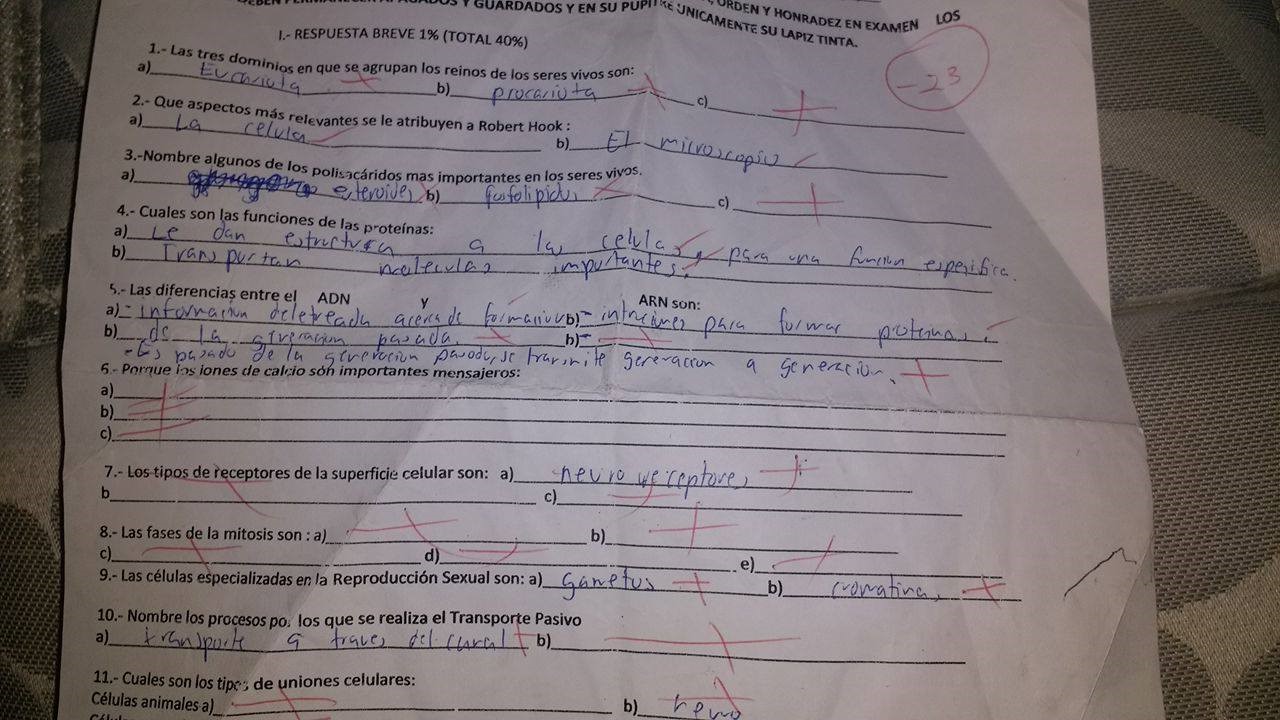 DEBEN PERMANECER APAGADOS Y GUARDADOS Y EN SU PUPITRE UNICAMENTE SU LAPIZ TINTA.
ORDEN Y HONRADEZ EN EXAMEN LOS
-23
I.- RESPUESTA BREVE 1% (TOTAL 40%)
1.- Las tres dominios en que se agrupan los reinos de los seres vivos son:
a) Eucariota b) procariota c)
2.- Que aspectos más relevantes se le atribuyen a Robert Hook :
a) La celula b) El microscopio
3.-Nombre algunos de los polisacáridos mas importantes en los seres vivos.
a) esteroides b) fosfolipidos c)
4.- Cuales son las funciones de las proteínas:
a) Le dan estructura a las celulas, para una funcion espesifica.
b) Transportan moleculas importantes.
5.- Las diferencias entre el ADN y ARN son:
a) - informacion deletreada acerca de b) - para formar proteinas.
b) de la generacion pasada. b) -
- Es pasado de la generacion se transmite generacion a generacion.
6.- Porque los iones de calcio són importantes mensajeros:
a)
b)
c)
7.- Los tipos de receptores de la superficie celular son: a) neuro receptores
b c)
8.- Las fases de la mitosis son : a) b)
c) d) e)
9.- Las células especializadas en la Reproducción Sexual son: a) Gametos b) cromatina
10.- Nombre los procesos por los que se realiza el Transporte Pasivo
a) transporte a traves del canal b)
11.- Cuales son los tipos de uniones celulares:
Células animales a) b)